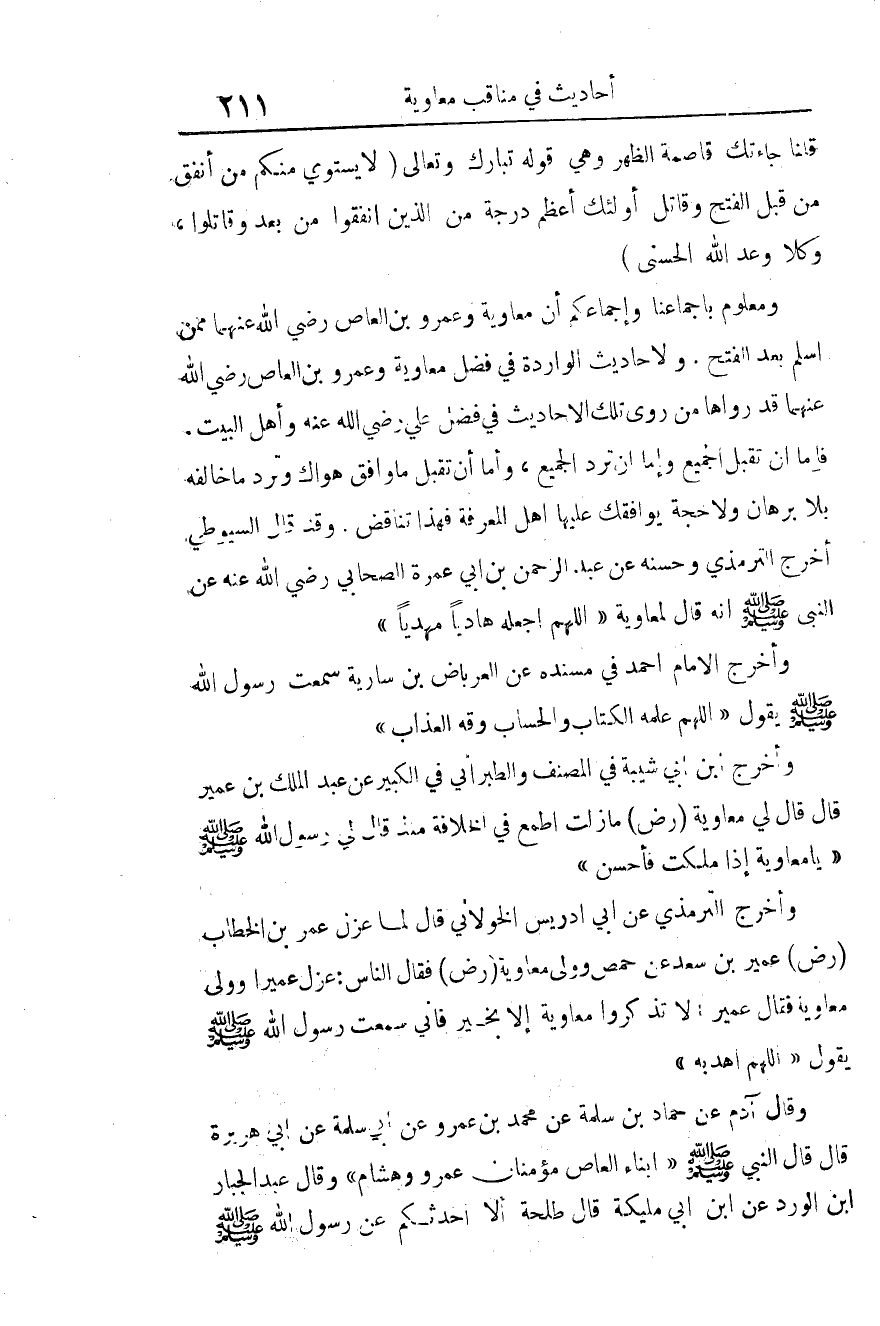 أحاديث في مناقب معاوية
٢١١
قلنا جاءتك قاصمة الظهر وهي قوله تبارك وتعالى ( لايستوي منكم من أنفق
من قبل الفتح وقاتل أولئك أعظم درجة من الذين انفقوا من بعد وقاتلوا ،
وكلا وعد الله الحسنى )
ومعلوم باجماعنا وإجماعكم أن معاوية وعمرو بن العاص رضي الله عنهما ممن
اسلم بعد الفتح . ولاحاديث الواردة في فضل معاوية وعمرو بن العاص رضي الله
عنهما قد رواها من روى تلك الاحاديث في فضل علي رضي الله عنه وأهل البيت .
فإما ان تقبل الجميع وإما ان ترد الجميع ، وأما أن تقبل ماوافق هواك وترد ماخالفه
بلا برهان ولاحجة يوافقك عليها اهل المعرفة فهذا تناقض . وقد قال السيوطي
أخرج الترمذي وحسنه عن عبد الرحمن بن ابي عمرة الصحابي رضي الله عنه عن
النبي ﷺ انه قال لمعاوية « اللهم اجعله هادياً مهدياً »
وأخرج الامام احمد في مسنده عن العرباض بن سارية سمعت رسول الله
ﷺ يقول « اللهم علمه الكتاب والحساب وقه العذاب »
وأخرج ابن ابي شيبة في المصنف والطبراني في الكبير عن عبد الملك بن عمير
قال قال لي معاوية (رض) مازلت اطمع في الخلافة منذ قال لي رسول الله ﷺ
« يامعاوية إذا ملكت فأحسن »
وأخرج الترمذي عن ابي ادريس الخولاني قال لما عزل عمر بن الخطاب
(رض) عمير بن سعد عن حمص وولى معاوية (رض) فقال الناس : عزل عميرا وولى
معاوية فقال عمير : لا تذكروا معاوية إلا بخير فاني سمعت رسول الله ﷺ
يقول « اللهم اهد به »
وقال آدم عن حماد بن سلمة عن محمد بن عمرو عن ابي سلمة عن ابي هريرة
قال قال النبي ﷺ « ابناء العاص مؤمنان عمرو وهشام » وقال عبد الجبار
ابن الورد عن ابن ابي مليكة قال طلحة ألا احدثكم عن رسول الله ﷺ